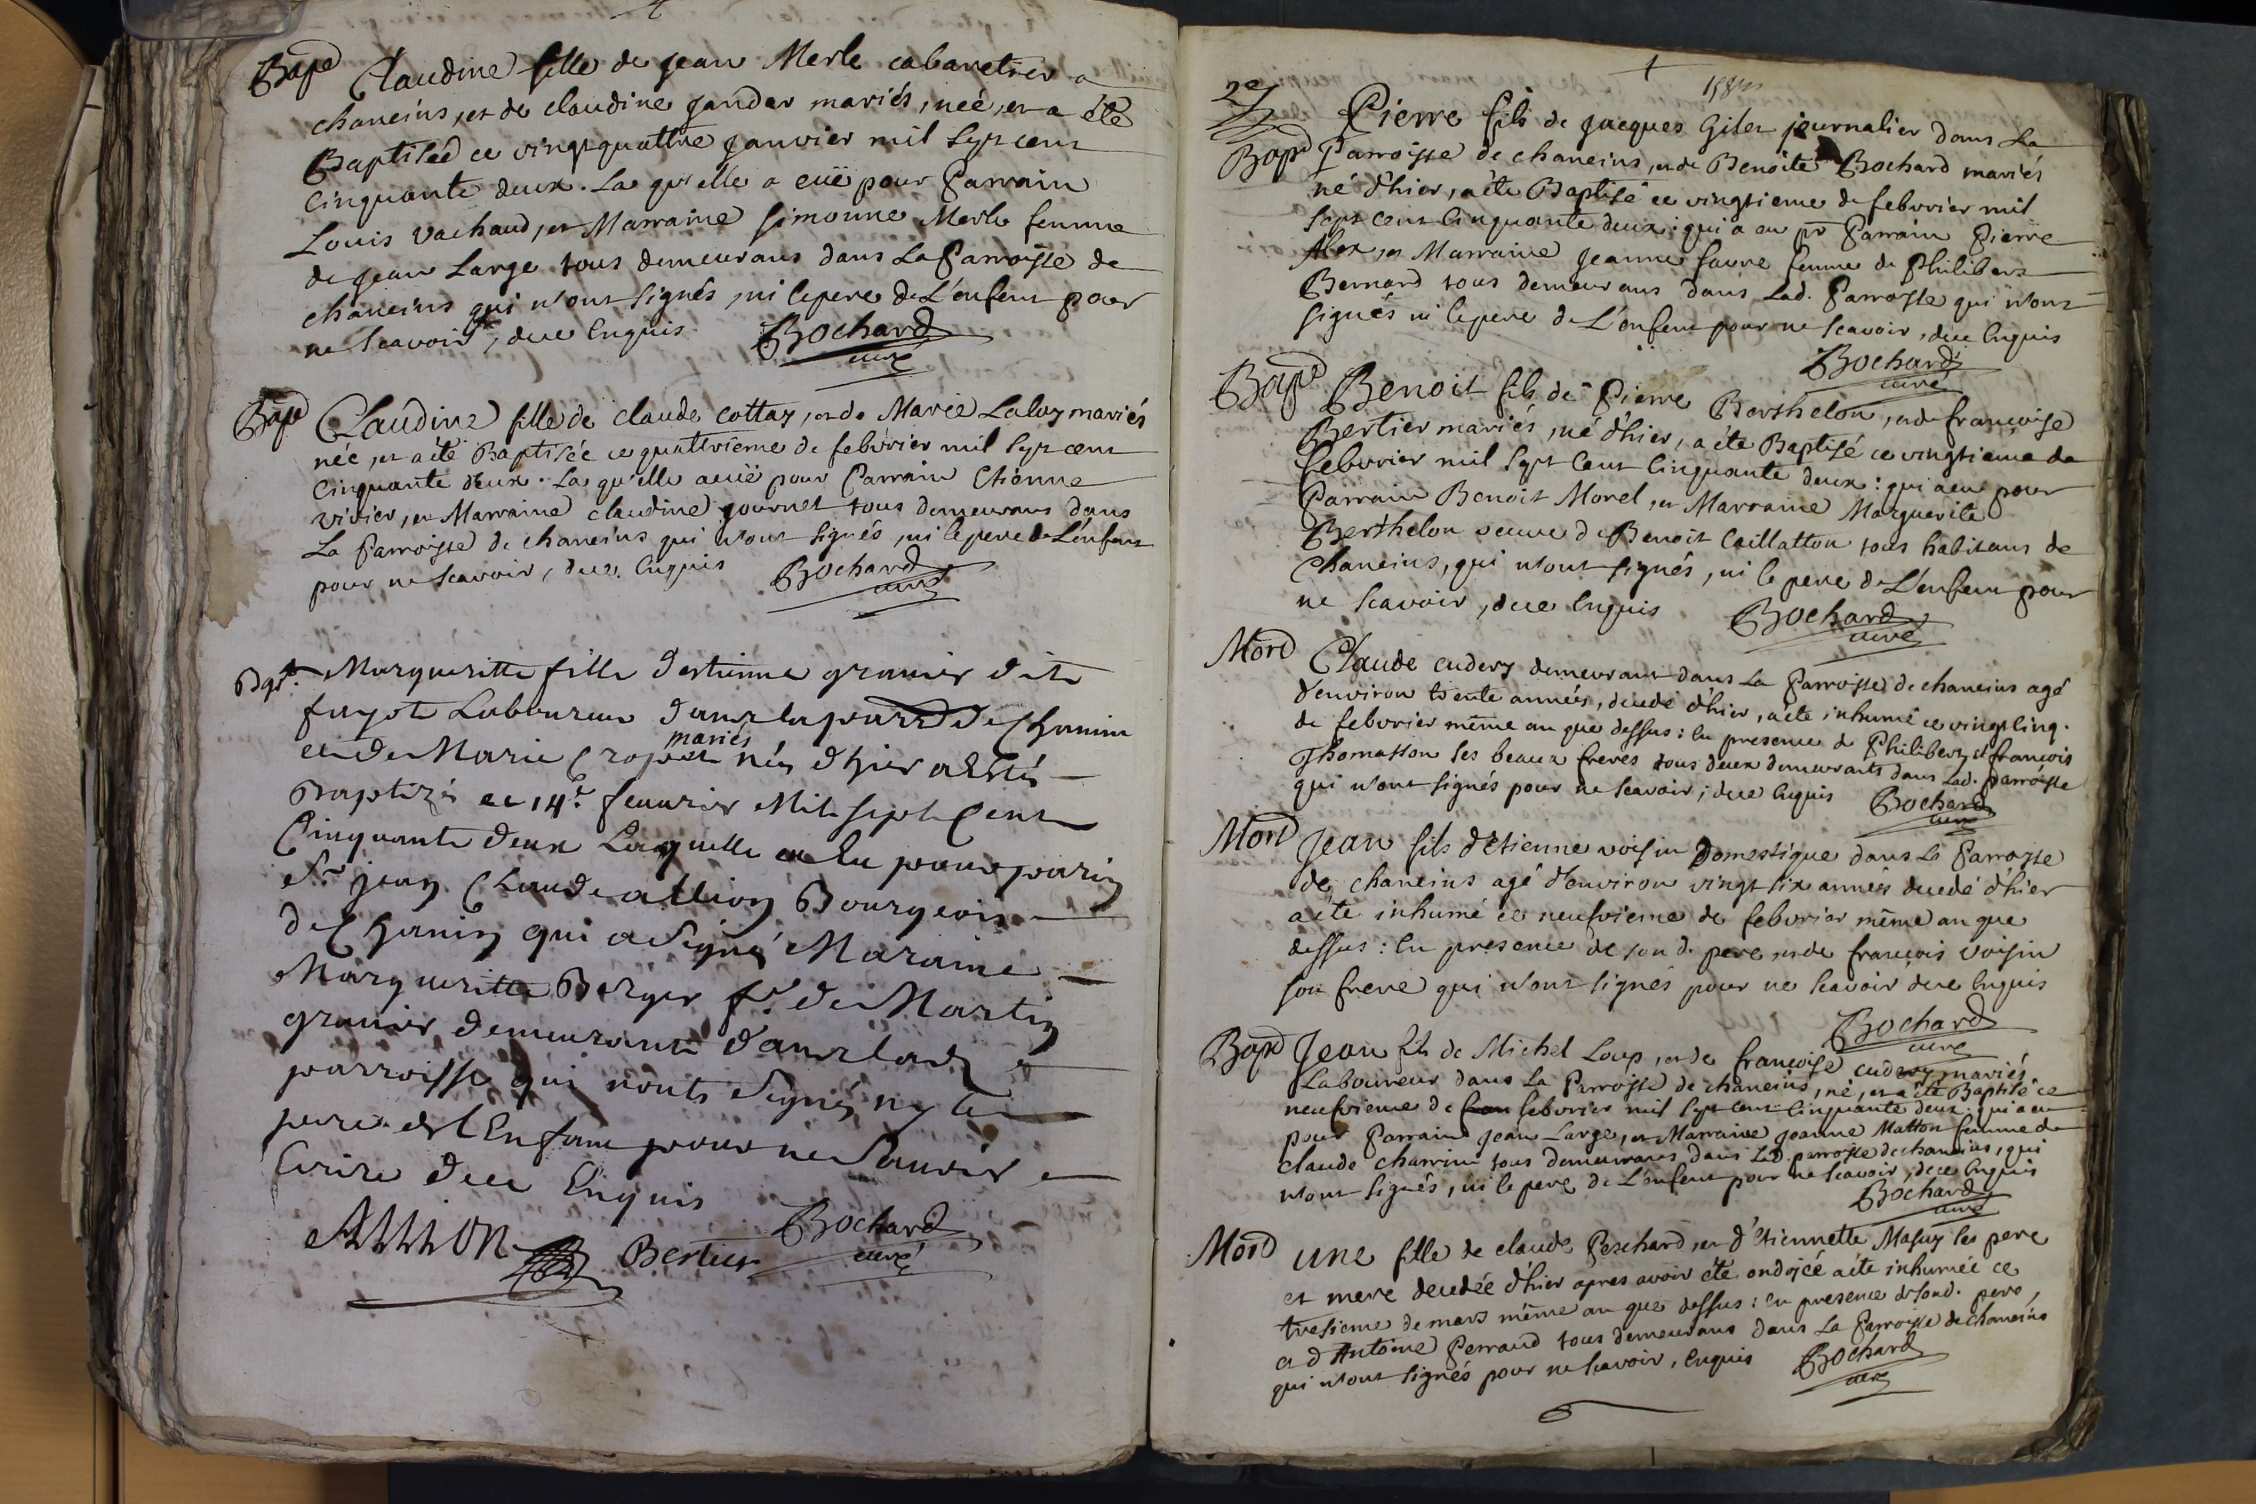 Bap.e Claudine fille de jean Merle cabaretier a
chaneins, et de claudine jandar mariés, neé, et a été
Baptiseé ce vingtquattre janvier mil sept cent
cinquante deux. La qu'elle a eüe pour Parrain
Louis vachaud, et Marraine simonne Merle femme
de jean Large tous demeurans dans La Parroisse de
chaneins qui n'ont signés, ni le pere de L'enfent pour
ne scavoir, due enquis Bochard
curé
Bap.e Claudine fille de claude cottay, et de Marie Laluy mariés
née, et a été Baptisée ce quattrieme de febvrier mil sept cent
cinquante deux. La qu'elle a eüe pour Parrain Etienne
vivier, et Marraine claudine journet tous demeurans dans
La Parroisse de chaneins qui n'ont signés, ni le pere de L'enfent
pour ne scavoir, due enquis Bochard
curé
Bapt. Margueritte fille d'estienne granier dit
fayot Laboureur dans la parr de Chanin
et de Marie mariés née d'hier a Esté
Baptizé ce 14.e feuvrier Mil sept Cent
Cinquante deux Laquelle a Eu pour parin
Sr jean Claude allion Bourgeois
de Chanin qui a Signé Maraine
Margueritte Berger f.e de Martin
granier demeurant dans lad
parroisse qui nonts Signés ny le
pere de lEnfant pour ne Sauoir
Ecrire due Enquis
Allion Bertier Bochard
curé
2e
Pierre fils de jacques Gilet journalier dans La
Bap.e Parroisse de chaneins, et de Benoite Bochard mariés
né d'hier, a été Baptisé ce vingtieme de febvrier mil
sept cent cinquante deux: qui a eu pr Parrain Pierre
Alex, et Marraine jeanne favre femme de Philibert
Bernard tous demeurans dans Lad. Parroisse qui n'ont
signés ni le pere de L'enfent pour ne scavoir, due enquis
Bochard
curé
Bap.e Benoit fils de Pierre Berthelon, et de françoise
Bertier mariés, né d'hier, a été Baptisé ce vingtieme de
febvrier mil sept Cent Cinquante deux: qui a eu pour
Parrain Benoit Morel, et Marraine Marguerite
Berthelon veuve de Benoit Caillatton tous habitans de
Chaneins, qui n'ont signés, ni le pere de L'enfent pour
ne scavoir, due enquis Bochard
curé
Mort Claude cudery demeurant dans La Parroisse de chaneins agé
d'environ trente années, decedé d'hier, a été inhumé ce vingt cinq.
de febvrier même an que dessus: en presence de Philibert, et françois
Thomasson ses beaux freres tous deux demeurants dans Lad. parroisse
qui n'ont signés pour ne scavoir, due enquis Bochard
curé
Mort Jean fils d'Etienne voisin Domestique dans La Parroisse
de chaneins agé d'environ vingt six années decedé d'hier
a été inhumé ce neufvieme de febvrier même an que
dessus: en presence de son d. pere et de françois voisin
son frere qui n'ont signés pour ne scavoir due enquis
Bochard
curé
Bap.e Jean fils de Michel Loup, et de françoise cudery mariés
Laboureur dans La Parroisse de chaneins, né, et a été Baptisé ce
neufvieme de febvrier mil sept cent cinquante deux: qui a eu
pour Parrain jean Large, et Marraine jeanne Matton femme de
claude charrin tous demeurans dans Lad. parroisse de chaneins, qui
n'ont signés, ni le pere de L'enfent pour ne scavoir, due enquis
Bochard
curé
Mort une fille de claude Perchard, et d'Etiennette Mapuy les pere
et mere decedée d'hier apres avoir été ondojée a été inhumée ce
tresieme de mars même an que dessus: en presence de son d. pere,
et d Antoine Perraud tous demeurans dans La Parroisse de chaneins
qui n'ont signés pour ne scavoir, enquis Bochard
curé